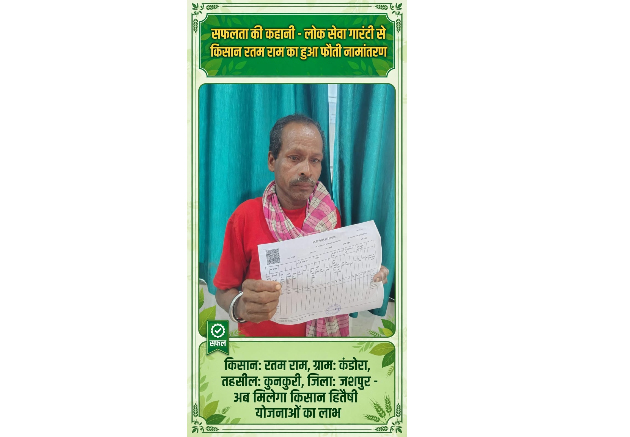 सफलता की कहानी - लोक सेवा गारंटी से
किसान रतम राम का हुआ फौती नामांतरण
सफल
किसान: रतम राम, ग्राम: कंडोरा,
तहसील: कुनकुरी, जिला: जशपुर -
अब मिलेगा किसान हितैषी
योजनाओं का लाभ